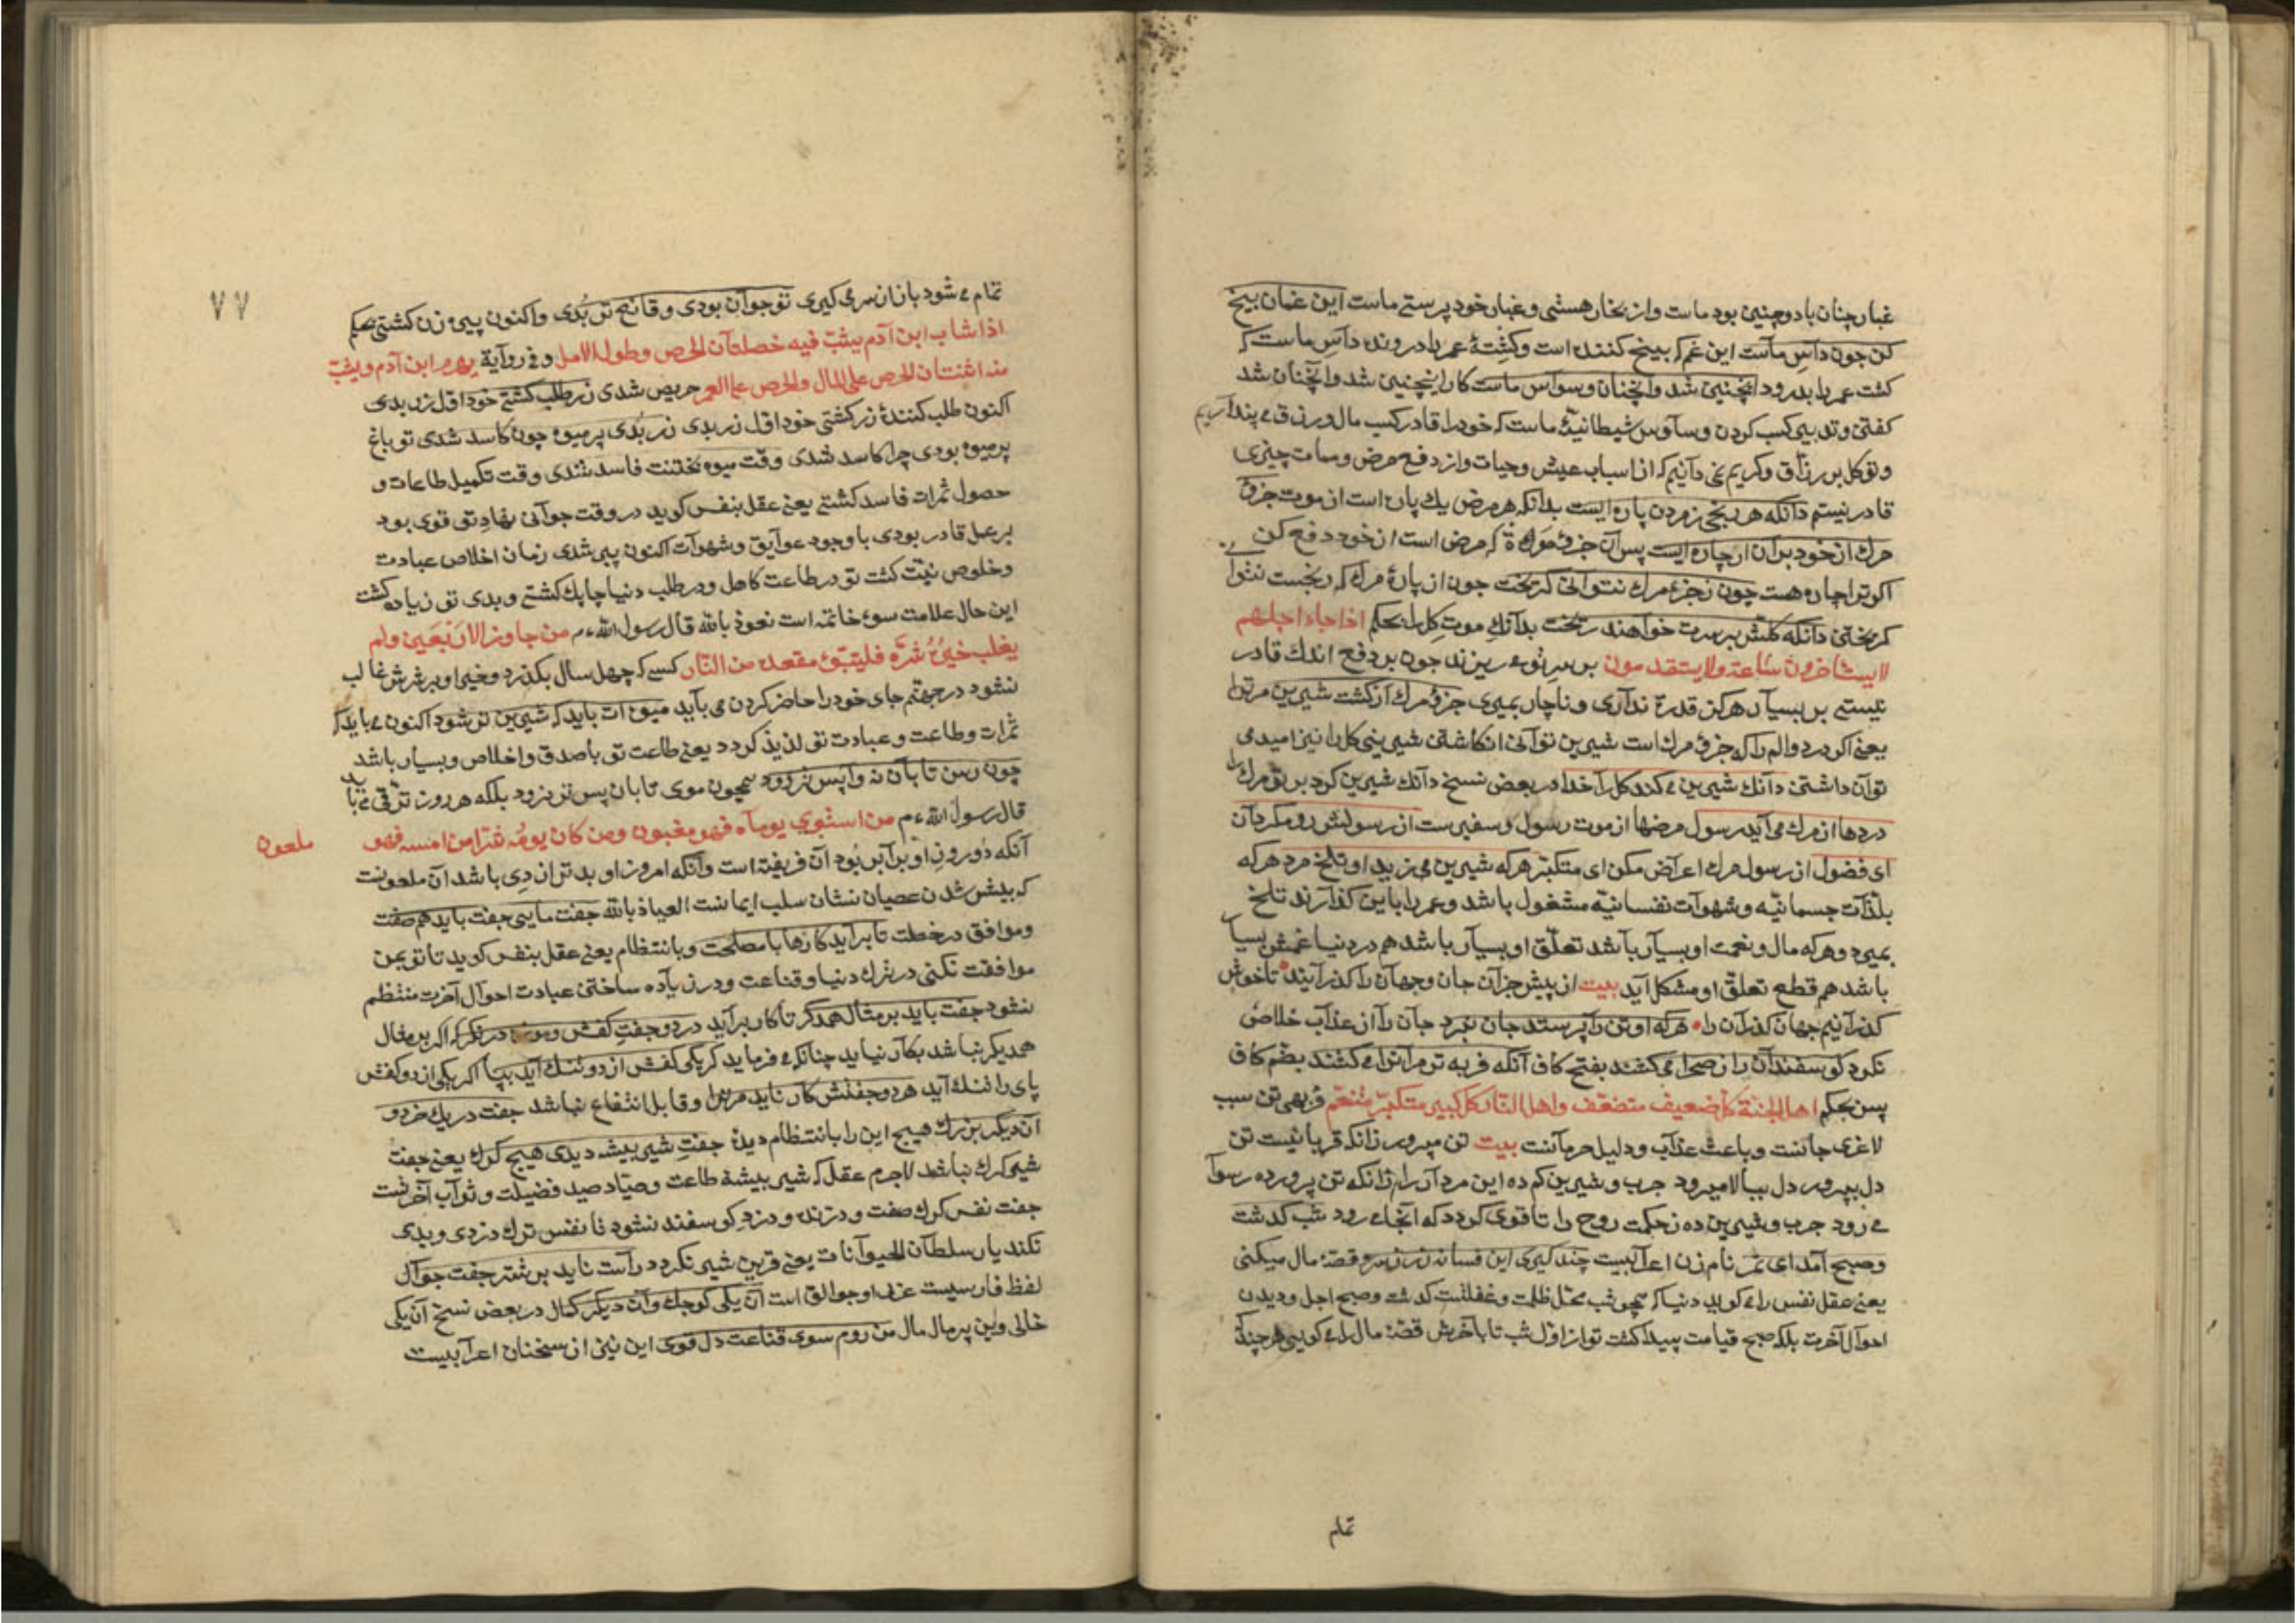 غبار چنان باد و چنین بود ماست و از بخار هستی و غبار خود پرستی ماست این غمان بیخ
کن چون داس ماست این غم که بیخ کننده است و کشتهٔ عمر را درونده داس ماست که
کشت عمر را بدرود اینچنین شد وانچنان وسواس ماست کار اینچنین شد و انچنان شد
کفتن و تدبیر کسب کردن وساوس شیطانیهٔ ماست که خود را قادر کسب مال و رزق می پنداریم
و توکل بر رزاق و کریم نمی دانیم که از اسباب عیش و حیات و از دفع مرض و ممات چیزی
قادر نیستم دانکه هر رنجی ز مردن پاره ایست بدانکه هر مرض یك پاره است از موت جزؤ
مرك از خود بران ار چاره ایست پس آن جزؤ که مرض است از خود دفع کن
اکر ترا چاره هست چون ز جزء مرك نتوانی کریخت چون از پارهٔ مرك که رنجست نتوانی
کریختن دانکه کلش بر سرت خواهند ریخت بدانك موت کل را بحکم اذا جاء اجلهم
لا یستأخرون ساعة ولا یستقدمون بر سر تو می ریزند چون بر دفع اندك قادر
نیستی بر بسیار هرکز قدرة نداری و ناچار بمیری جزؤ مرك ار کشت شیرین مر ترا
یعنی اکر درد و الم را که جزؤ مرك است شیرین توانی انکاشتن شیرینی کل را نیز امید می
توان داشتن دانك شیرین می کند کل را خدا در بعض نسخ دانك شیرین کرد بر تو مرك را
دردها از مرك می آید رسول مرضها از موت رسول و سفیرست از رسولش رو مکردان
ای فضول از رسول مرك اعراض مکن ای متکبر هرکه شیرین می زید او تلخ مرد هرکه
بلذات جسمانیه و شهوات نفسانیه مشغول باشد و عمر را باین کذارند تلخ
بمیرد و هرکه مال و نعمت او بسیار باشد تعلق او بسیار باشد هم در دنیا غمش بسیار
باشد هم قطع تعلق او مشکل آید بیت از پیش جزآن جان و جهان را کذرانید تا خوش
کذرانیم جهان کذران را هرکه او تن را پرستد جان نبرد جان را از عذاب خلاص
نکرد کوسفندان را ز صحرا می کشند بفتح کاف آنکه فربه تر مر انرا می کشند بضم کاف
پس بحکم اهل الجنة کل ضعیف متضعف واهل النار کل کبیر متکبر متنعم فربهی تن سبب
لاغری جانست و باعث عذاب و دلیل حرمانست بیت تن مپرور زانکه قربانیست تن
دل بپرور دل ببالا میرود چرب و شیرین کم ده این مردار را زانکه تن پرورده رسوا
می رود چرب و شیرین ده ز حکمت روح را تا قوی کردد که آنجا می رود شب کذشت
و صبح آمد ای تمر نام زن اعرابیست چند کیری این فسانه زر ز سر و قصهٔ مال میکنی
یعنی عقل نفس را می کوید دنیا که همچو شب محل ظلمت و غفلتست کذشت و صبح اجل و دیدن
احوال آخرت بلکه صبح قیامت پیدا کشت تو از اول شب تا باخرش قصهٔ مال را می کویی هر چند که
تمام
٧٧
تمام می شود باز از سر می کیری تو جوان بودی و قانع تر بدی و اکنون پیر زن کشتی بحکم
اذا شاب ابن آدم یشب فیه خصلتان الحرص وطول الامل وفی روایة یهرم ابن آدم ویشب
منه اثنتان الحرص علی المال والحرص علی العمر حریص شدی زر طلب کشتی خود اول زر بدی
اکنون طلب کنندهٔ زر کشتی خود اول زر بدی زر بدی پر میوه چون کاسد شدی تو باغ
پر میوه بودی چرا کاسد شدی وقت میوه پختنت فاسد شدی وقت تکمیل طاعات و
حصول ثمرات فاسد کشتی یعنی عقل بنفس کوید در وقت جوانی نهاد تو قوی بود
بر عمل قادر بودی با وجود عوایق و شهوات اکنون پیر شدی زمان اخلاص عبادت
و خلوص نیت کشت تو در طاعت کاهل و در طلب دنیا چابك کشتی و بدی تو زیاده کشت
این حال علامت سوء خاتمه است نعوذ بالله قال رسول الله عم من جاوز الاربعین ولم
یغلب خیره شره فلیتبوء مقعده من النار کسی که چهل سال بکذرد و خیر او بر شرش غالب
نشود در جهنم جای خود را حاضر کردن می باید میوه ات باید که شیرین تر شود اکنون می باید که
ثمرات و طاعت و عبادت تو لذیذ کردد یعنی طاعت تو با صدق و اخلاص و بسیار باشد
چون رسن تابان نه واپس تر رود همچون موی تابان پس تر نرود بلکه هر روز ترقی می باید
قال رسول الله عم من استوی یوماه فهو مغبون ومن کان یومه شرا من امسه فهو
ملعون
آنکه دو روز او برابر بود آن فریفته است و آنکه امروز او بدتر از دی باشد آن ملعونست
که بیش شدن عصیان نشان سلب ایمانست العیاذ بالله جفت مایی جفت باید هم صفت
و موافق در خصلت تا برآید کارها با مصلحت و بانتظام یعنی عقل بنفس کوید تا تو بمن
موافقت نکنی در ترك دنیا و قناعت و در زیاده ساختن عبادت احوال آخرت منتظم
نشود جفت باید بر مثال همدکر تا کار برآید در دو جفت کفش و موزه در نکر که اکر بر مثال
همدیکر نباشد بکار نیاید چنانکه می فرماید کر یکی کفش از دو تنك آید بپا اکر یکی از دو کفش
پای را تنك آید هر دو جفتش کار ناید مر ترا و قابل انتفاع نباشد جفت در یك خرد و
آن دیکر بزرك هیچ این را بانتظام دیدهٔ جفت شیر بیشه دیدی هیچ کرك یعنی جفت
شیر کرك نباشد لاجرم عقل که شیر بیشهٔ طاعت و صیاد صید فضیلت و ثواب آخرتست
جفت نفس کرك صفت و درنده و دزد کوسفند نشود تا نفس ترك دزدی و بدی
نکند یار سلطان الحیوانات یعنی قرین شیر نکردد راست ناید بر شتر جفت جوال
لفظ فارسیست عربی او جوالق است آن یکی کوچك وآن دیکر کمال در بعض نسخ آن یکی
خالی و این پر مال مال من روم سوی قناعت دل قوی این نیز از سخنان اعرابیست